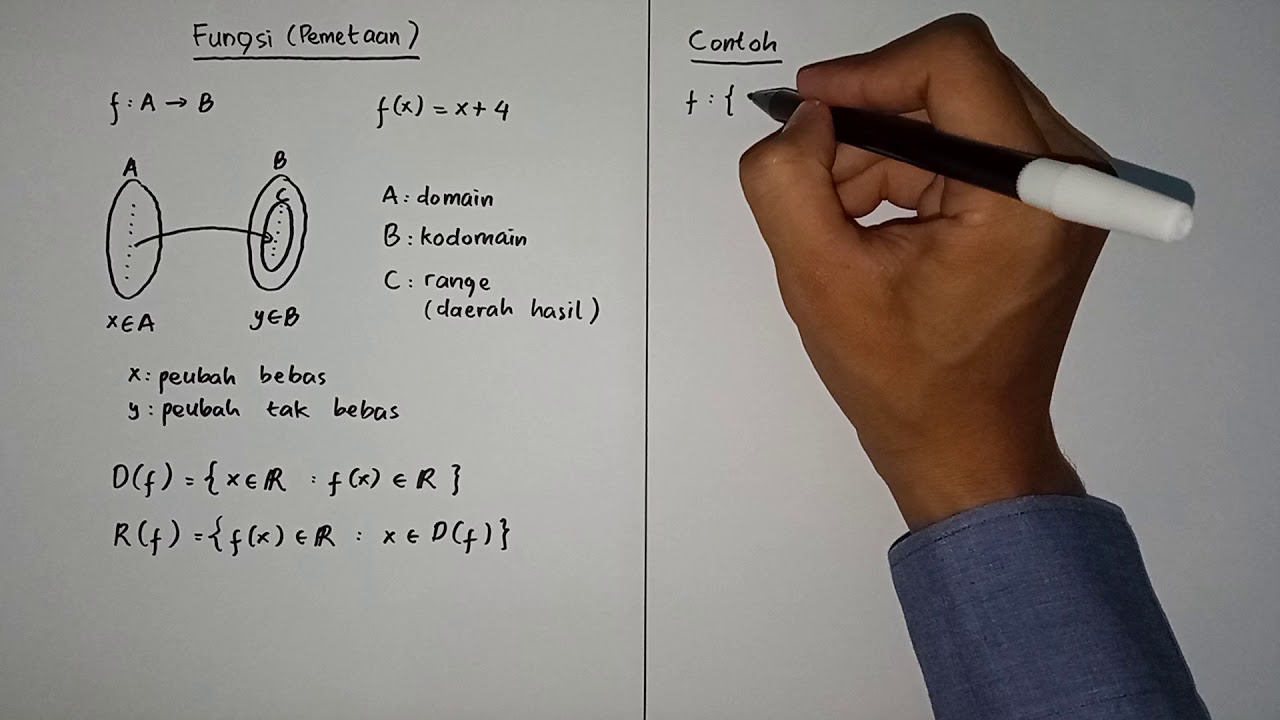 Fungsi (Pemetaan)
f : A → B
f(x) = x + 4
A
B
C
A : domain
B : kodomain
C : range
(daerah hasil)
x ∈ A
y ∈ B
x : peubah bebas
y : peubah tak bebas
D(f) = { x ∈ ℝ : f(x) ∈ ℝ }
R(f) = { f(x) ∈ ℝ : x ∈ D(f) }
Contoh
f : {